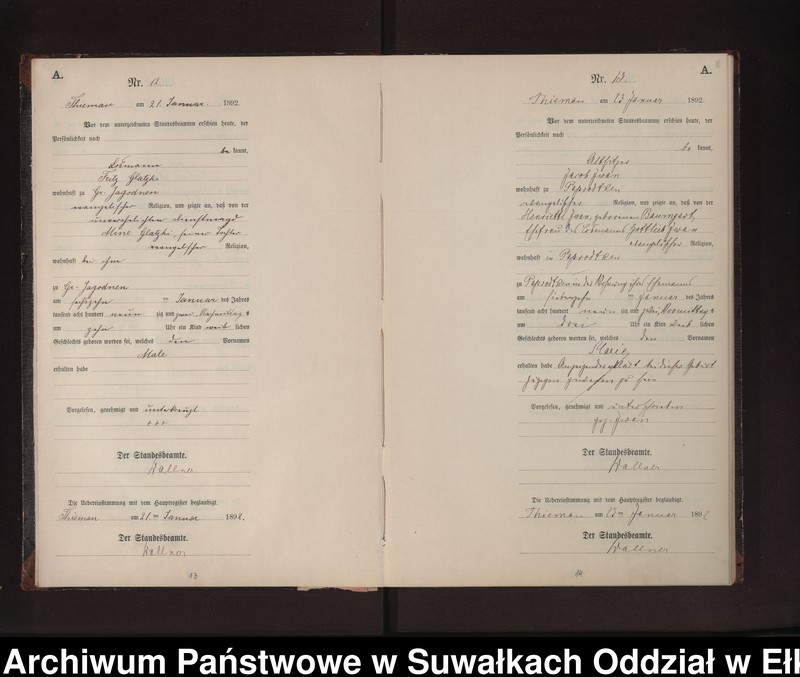 A.
Nr. 12
Thiemau am 21. Januar. 1892.
Vor dem unterzeichneten Standesbeamten erschien heute, der
Persönlichkeit nach
be kannt,
Losmann
Fritz Glatzki
wohnhaft zu Gr. Jagodnen
evangelischer Religion, und zeigte an, daß von der
unverehelichten Dienstmagd
Mine Glatzki, seiner Tochter
evangelischer Religion,
wohnhaft bei ihm
zu Gr. Jagodnen
am sechszehn ten Januar des Jahres
tausend acht hundert neun zig und zwei Nachmittag s
um zehn Uhr ein Kind weib lichen
Geschlechts geboren worden sei, welches den Vornamen
Male
erhalten habe
Vorgelesen, genehmigt und unterkreuzt
+++
Der Standesbeamte.
Wallner
Die Uebereinstimmung mit dem Hauptregister beglaubigt.
Thiemau am 21. ten Januar 1892.
Der Standesbeamte.
Wallner
13
A.
Nr. 13.
Thiemau am 23 Januar 1892.
Vor dem unterzeichneten Standesbeamten erschien heute, der
Persönlichkeit nach
be kannt,
Altsitzer
Jacob Iwan
wohnhaft zu
evangelischer Religion, und zeigte an, daß von der
Henriette Iwan, geborenen
Ehefrau des Losmanns Gottlieb Iwan
evangelischer Religion,
wohnhaft in
zu in der Wohnung ihres Ehemanns
am siebzehn ten Januar des Jahres
tausend acht hundert neun zig und zwei Vormittag s
um drei Uhr ein Kind weib lichen
Geschlechts geboren worden sei, welches den Vornamen
Marie
erhalten habe Anzeigender erklärt bei dieser Geburt
zugegen gewesen zu sein
Vorgelesen, genehmigt und unterschrieben
gez. Iwan
Der Standesbeamte.
Wallner
Die Uebereinstimmung mit dem Hauptregister beglaubigt.
Thiemau am 23 ten Januar 1892
Der Standesbeamte.
Wallner
14
Archiwum Państwowe w Suwałkach Oddział w Ełk